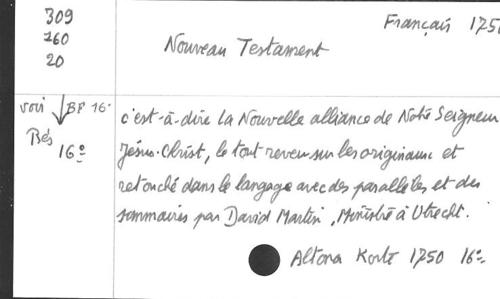 309
760
20
Français 175
Nouveau Testament
voir BF 16°
Bés
16°
c'est-à-dire la Nouvelle alliance de Notre Seigneur
Jésus-Christ, le tout revu sur les originaux et
retouché dans le langage avec des parallèles et des
sommaires par David Martin, Ministre à Utrecht.
Altona Korte 1750 16°